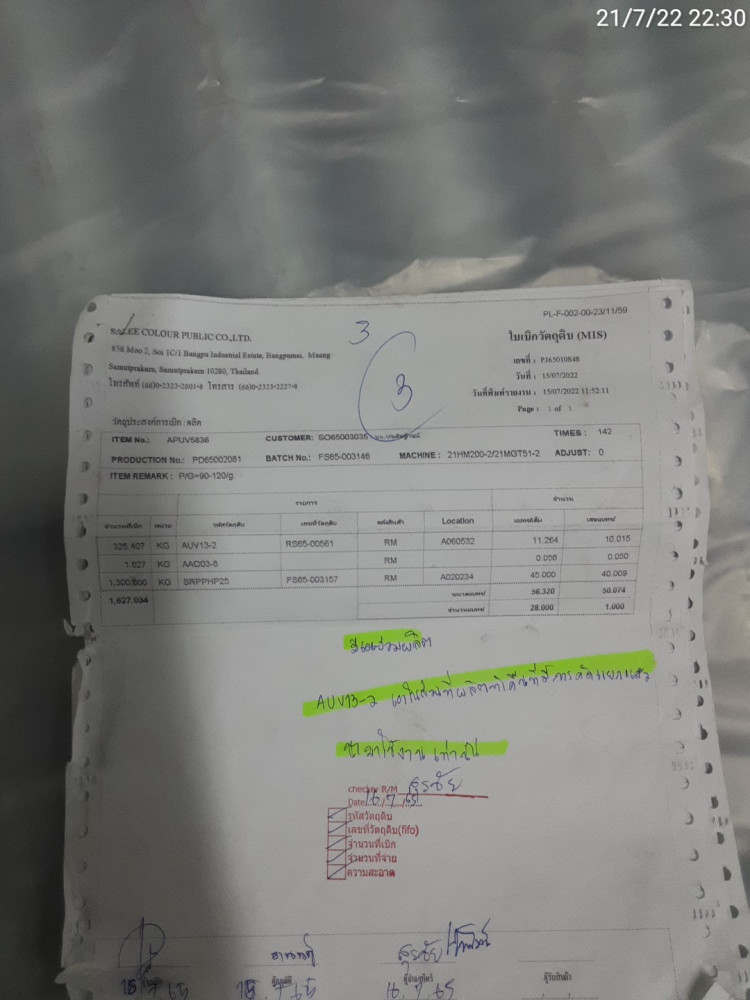 21/7/22 22:30
PL-F-002-00-23/11/59
SALEE COLOUR PUBLIC CO.,LTD.
858 Moo 2, Soi 1C/1 Bangpu Industrial Estate, Bangpumai, Muang
Samutprakarn, Samutprakarn 10280, Thailand.
ใบเบิกวัตถุดิบ (MIS)
เลขที่ : PJ65010848
วันที่ : 15/07/2022
วันที่พิมพ์รายงาน : 15/07/2022 11:52:11
Page : 1 of 1
3
3
วัตถุประสงค์การเบิก : ผลิต
ITEM No.: APUV5836 CUSTOMER: SO65003035 TIMES : 142
PRODUCTION No.: PD65002081 BATCH No.: FS65-003146 MACHINE : 21HM200-2/21MGT51-2 ADJUST: 0
ITEM REMARK : P/G=90-120/g.
รายการ จำนวน
จำนวนที่เบิก หน่วย รหัสวัตถุดิบ เลขที่วัตถุดิบ คลังสินค้า Location
KG AUV13-2 RS65-00561 RM A060532 11.264 10.015
1.627 KG AAC03-8 RM 0.050 0.050
1,300.000 KG SRPPHP25 FS65-003157 RM A020234 45.000 40.009
1,627.034 56.320 50.074
28.000 1.000
AUV13-2
เท่านั้น
checker R/M สุรชัย
Date 16/7/65
รหัสวัตถุดิบ
เลขที่วัตถุดิบ(fifo)
จำนวนที่เบิก
จำนวนที่จ่าย
ความสะอาด
สุรชัย
16.7.65